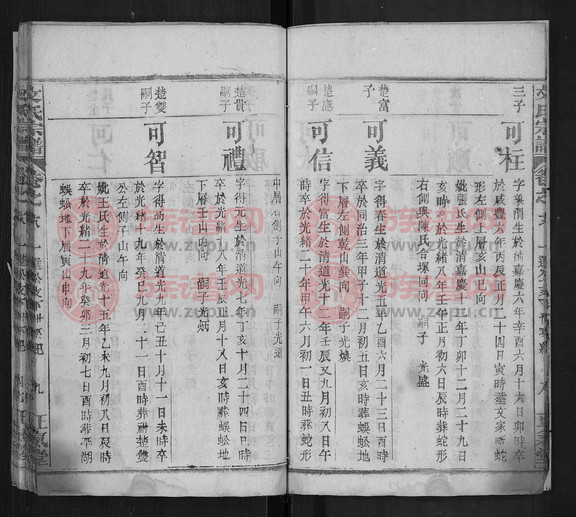 三子
可柱
字棄蘭生於清嘉慶六年辛酉六月十六日卯時卒
於咸豐六年丙辰正月二十四日寅時葬文家嘶蛇
形左側上層亥山巳向
妣張氏生於清嘉慶十二年丁卯十二月二十九日
亥時歿於光緒八年壬午正月初六日辰時葬蛇形
右側與陳氏合塚同向 嗣子 光盛
楚富
子
可義
字得春生於清道光
卒於同治三年甲子十二月初三日酉時葬蜈蚣地
下層左側乾山巽向 嗣子光燒
楚應
嗣子
可信
字得富生於清道光十二年壬辰又九月初八日午
時卒於光緒二十年甲午六月初一日丑時葬蛇形
中層右側子山午向 嗣子光
楚貴
嗣子
可禮
字得元生於清道光七年丁亥十月二十四日巳時
歿於光緒八年壬午五月十八日亥時葬蜈蚣地
下層壬山丙向 嗣子光炳
楚雙
嗣子
可智
字得尚生於清道光九年己丑十月十一日未時卒
於光緒十九年癸巳九月二十一日酉時葬祔楚雙
公左側子山午向
妣王氏生於清道光十五年乙未九月初八日辰時
歿於光緒二十九年癸卯三月初七日酉時葬平湖
蜈蚣地下層寅山申向
文氏宗譜
族譜网
www.zupu.cn